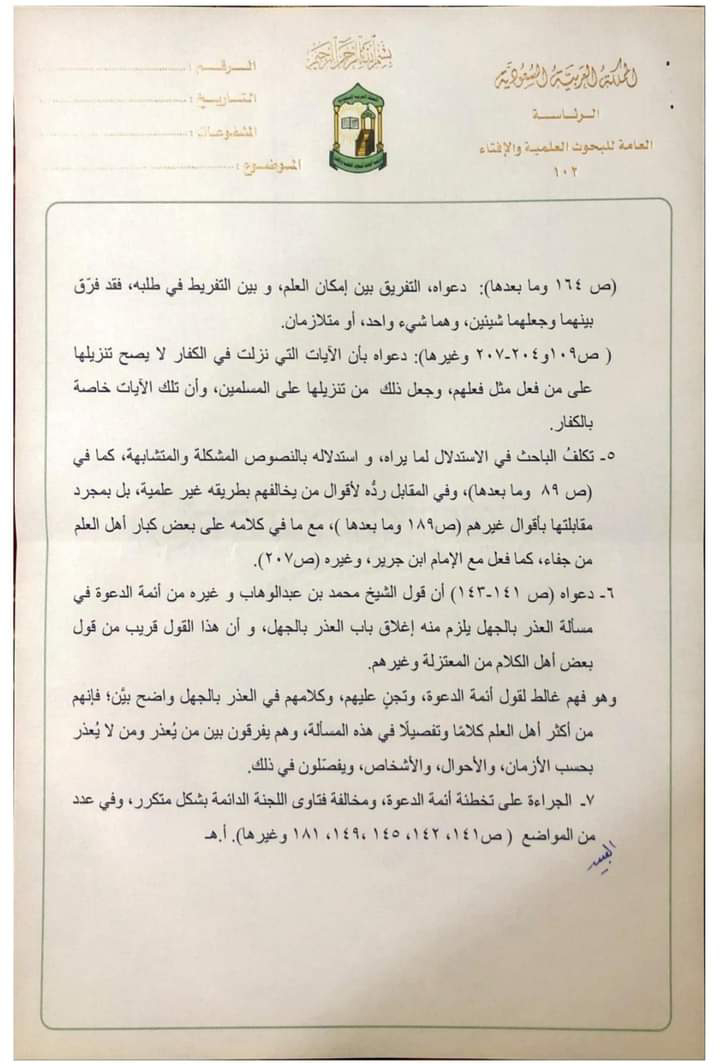 بسم الله الرحمن الرحيم
المملكة العربية السعودية
الرئاسة
العامة للبحوث العلمية والإفتاء
١٠٢
الرقم :
التاريخ :
المشفوعات :
الموضوع :
(ص ١٦٤ وما بعدها): دعواه، التفريق بين إمكان العلم، و بين التفريط في طلبه، فقد فرّق
بينهما وجعلهما شيئين، وهما شيء واحد، أو متلازمان.
( ص١٠٩و٢٠٤-٢٠٧ وغيرها): دعواه بأن الآيات التي نزلت في الكفار لا يصح تنزيلها
على من فعل مثل فعلهم، وجعل ذلك من تنزيلها على المسلمين، وأن تلك الآيات خاصة
بالكفار.
٥- تكلفُ الباحث في الاستدلال لما يراه، و استدلاله بالنصوص المشكلة والمتشابهة، كما في
(ص ٨٩ وما بعدها)، وفي المقابل ردُّه لأقوال من يخالفهم بطريقه غير علمية، بل بمجرد
مقابلتها بأقوال غيرهم (ص١٨٩ وما بعدها )، مع ما في كلامه على بعض كبار أهل العلم
من جفاء، كما فعل مع الإمام ابن جرير، وغيره (ص٢٠٧).
٦- دعواه (ص ١٤١-١٤٣) أن قول الشيخ محمد بن عبدالوهاب و غيره من أئمة الدعوة في
مسألة العذر بالجهل يلزم منه إغلاق باب العذر بالجهل، و أن هذا القول قريب من قول
بعض أهل الكلام من المعتزلة وغيرهم.
وهو فهم غالط لقول أئمة الدعوة، وتجنٍ عليهم، وكلامهم في العذر بالجهل واضح بيَّن؛ فإنهم
من أكثر أهل العلم كلامًا وتفصيلًا في هذه المسألة، وهم يفرقون بين من يُعذر ومن لا يُعذر
بحسب الأزمان، والأحوال، والأشخاص، ويفصّلون في ذلك.
٧- الجراءة على تخطئة أئمة الدعوة، ومخالفة فتاوى اللجنة الدائمة بشكل متكرر، وفي عدد
من المواضع ( ص١٤١، ١٤٢، ١٤٥ ،١٤٩، ١٨١ وغيرها). أ.هـ